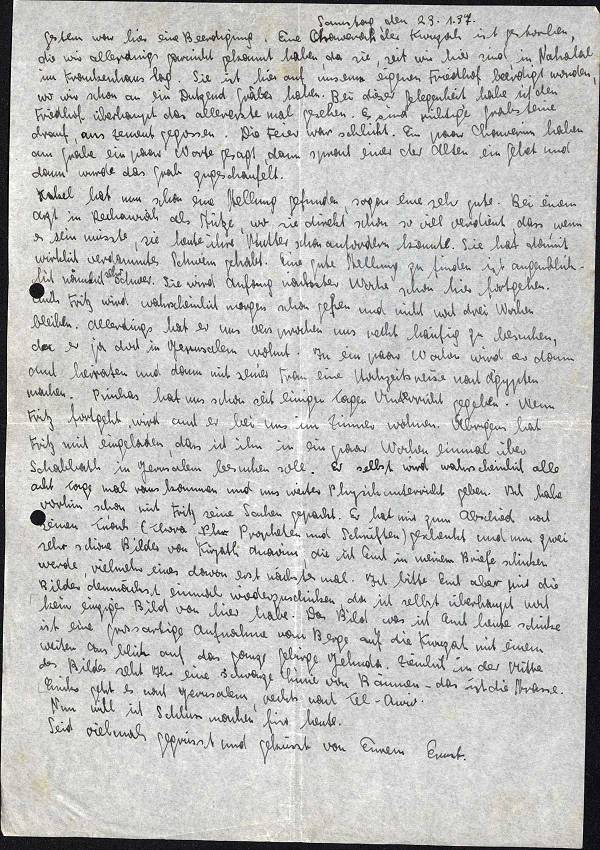 Samstag den 23.1.37.
Gestern war hier eine Beerdigung. Eine Chawerah der Kwuzah ist gestorben,
die wir allerdings garnicht gekannt haben da sie, seit wir hier sind in Nahalal
im Krankenhaus lag. Sie ist hier auf unserm eigenen Friedhof beerdigt worden,
wo wir schon an ein Dutzend Gräber haben. Bei dieser Gelegenheit habe ich den
Friedhof überhaupt das allererste mal gesehen. Es sind richtige Grabsteine
drauf, aus Zement gegossen. Die Feier war schlicht. Ein paar Chawerim haben
am Grabe ein paar Worte gesagt, dann sprach einer der Alten ein Gebet und
dann wurde das Grab zugeschaufelt.
hat nun schon eine Stellung gefunden sogar eine sehr gute. Bei einem
Arzt in Rechawiah als Stütze, wo sie direkt schon so viel verdient, dass wenn
es sein müsste, sie heute ihre Mutter schon anfordern könnte. Sie hat damit
wirklich verdammtes Schwein gehabt. Eine gute Stellung zu finden ist augenblick-
lich nämlich sehr schwer. Sie wird Anfang nächster Woche schon hier fortgehen.
Auch Fritz wird wahrscheinlich morgen schon gehen und nicht erst drei Wochen
bleiben. Allerdings hat er uns versprochen uns recht häufig zu besuchen,
da er ja dort in Jerusalem wohnt. In ein paar Wochen wird er dann
auch heiraten und dann mit seiner Frau eine Hochzeitsreise nach Ägypten
machen. Pinchas hat uns schon seit einigen Tagen Unterricht gegeben. Wenn
Fritz fortgeht, wird auch er bei uns im Zimmer wohnen. Übrigens hat
Fritz mich eingeladen, dass ich ihn in ein paar Wochen einmal über
Schabbath in Jerusalem besuchen soll. Er selbst wird wahrscheinlich alle
acht Tage mal rauskommen und uns weiter Physikunterricht geben. Ich habe
vorhin schon mit Fritz seine Sachen gepackt. Er hat mir zum Abschied noch
seinen Tnach (Thora Propheten und Schriften) geschenkt und nun zwei
sehr schöne Bilder von Kirjath Anavim die ich Euch in meinem Briefe schicken
werde, vielmehr eines davon erst nächstes mal. Ich bitte Euch aber mir die
Bilder demnächst einmal wiederzuschicken da ich selbst überhaupt noch
kein einziges Bild von hier habe. Das Bild was ich Euch heute schicke
ist eine grossartige Aufnahme vom Berge auf die Kwuzah mit einem
weiten Ausblick auf das ganze Gebirge Jehuda. Ziemlich in der Mitte
des Bildes seht Ihr eine schwarze Linie von Bäumen – das ist die Strasse.
Links geht es nach Jerusalem, rechts nach Tel-Awiw.
Nun will ich Schluss machen für heute.
Seid vielmals gegrüsst und geküsst von Eurem Ernst.